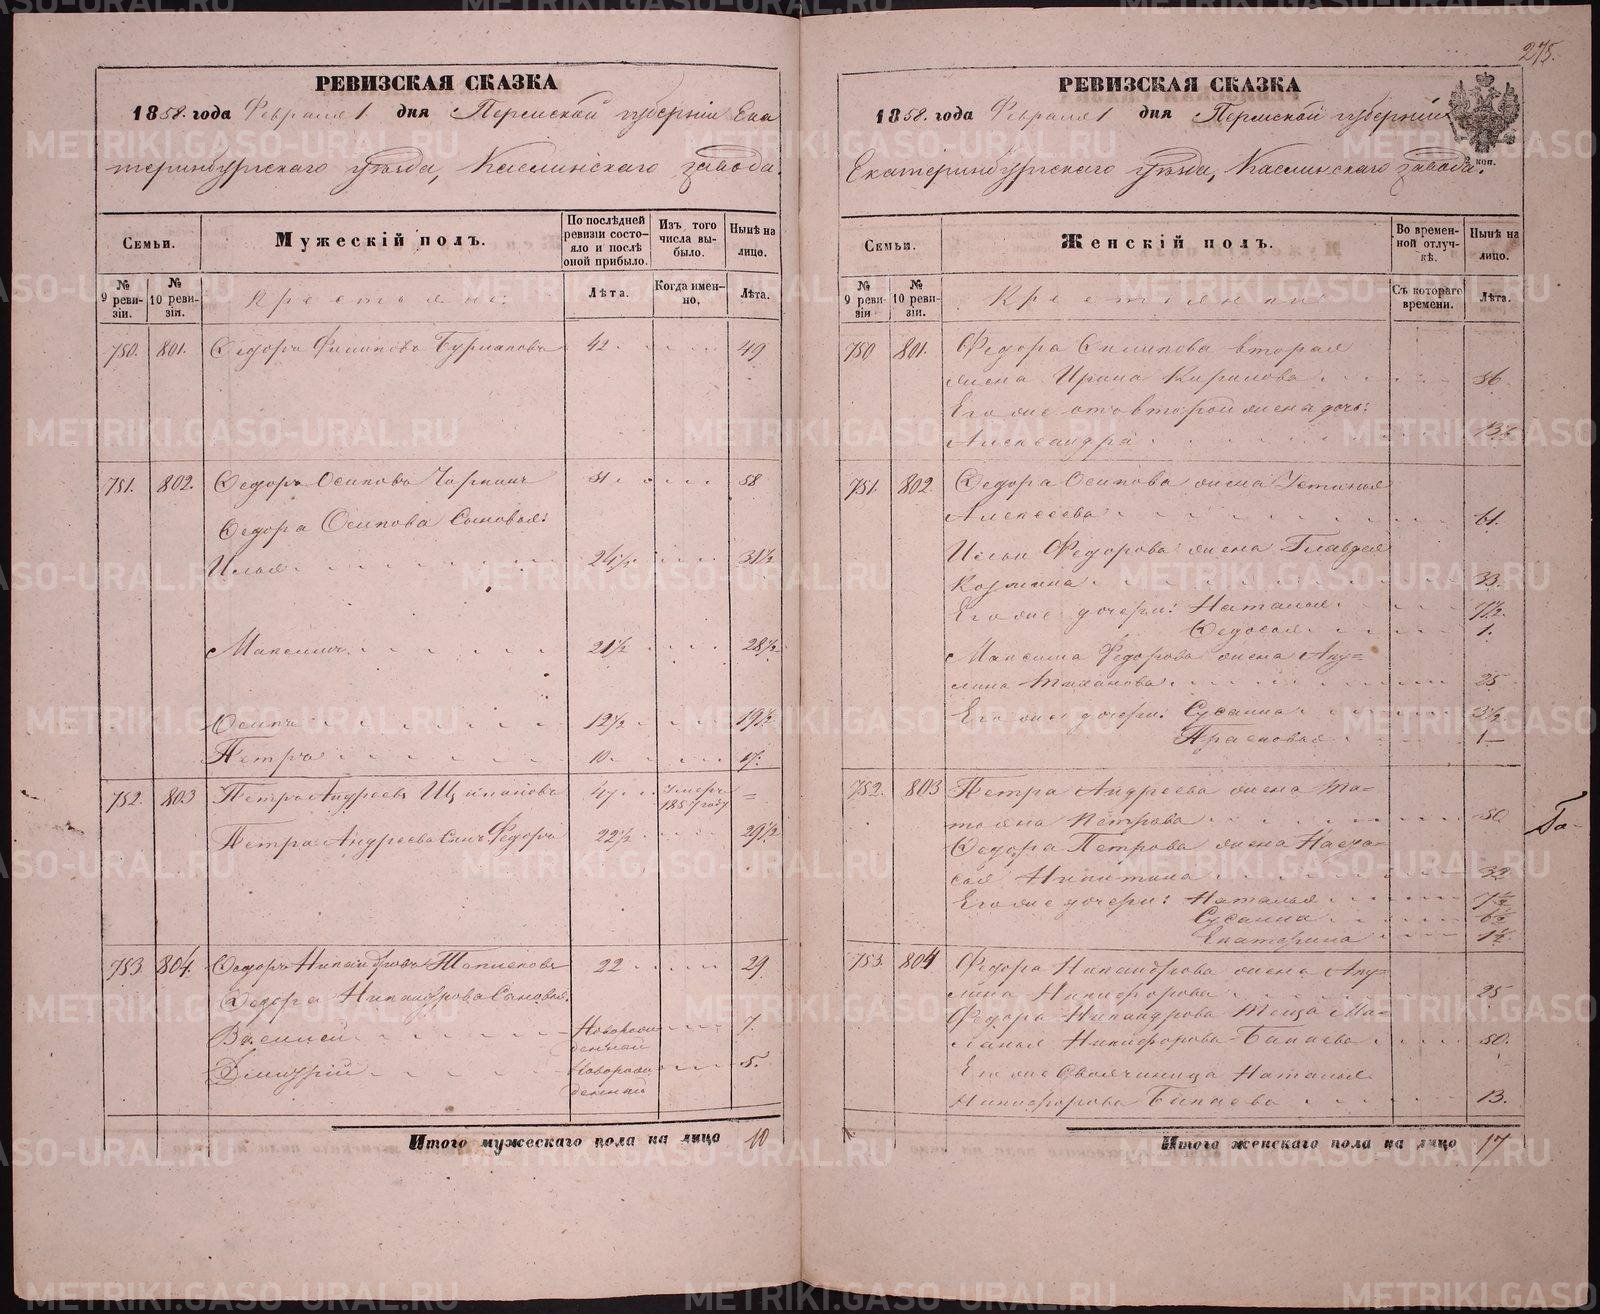 275.
РЕВИЗСКАЯ СКАЗКА
1858. года Февраля 1. дня Пермской губерніи Ека
теринбургскаго уѣзда, Каслинскаго завода.
Семьи.
Мужескій полъ.
По послѣдней ревизіи состояло и послѣ оной прибыло.
Изъ того числа выбыло.
Нынѣ на лицо.
№ 9 ревизіи.
№ 10 ревизіи.
Крестьяне:
Лѣта.
Когда именно,
Лѣта.
750. 801. Ѳедоръ Филиповъ 42 49
751. 802. Ѳедоръ Осиповъ 51 58
Ѳедора Осипова Сыновья:
Илья 24½ 31½
Максимъ 21½ 28½
Осипъ 12½ 19½
Петръ 10 17.
752. 803 Петръ Андреевъ 47 Умеръ 1857 году =
Петра Андреева Сынъ Ѳедоръ 22½ 29½
753. 804. Ѳедоръ Никандровъ 22 29
Ѳедора Никандрова Сыновья:
Василей Новорожденный 7.
Дмитрій Новорожденный 5.
Итого мужескаго пола на лицо 10
РЕВИЗСКАЯ СКАЗКА
1858. года Февраля 1 дня Пермской губерніи
Екатеринбургскаго уѣзда, Каслинскаго завода.
коп.
Семьи.
Женскій полъ.
Во временной отлучкѣ.
Нынѣ на лицо.
№ 9 ревизіи
№ 10 ревизіи.
Крестьянки:
Съ котораго времени.
Лѣта.
750 801. Ѳедора Филипова вторая
жена Ирина Кирилова 36
Его же отъ второй жена дочь:
Александра 13½
751. 802. Ѳедора Осипова жена Устинья
Алексеева 61.
Ильи Ѳедорова жена Глафира
Козмина 33.
Его же дочери: Наталья 7½.
Ѳедосья 1.
Максима Ѳедорова жена Аку=
лина 25
Его же дочери: Сусанна 3½
Прасковья 1
752. 803 Петра Андреева жена Та=
тьяна Петрова 50
Ѳедора Петрова жена Наста=
сья Никитина 32
Его же дочери: Наталья 7½
Сусанна 6½
Екатерина 1½
753. 804 Ѳедора Никандрова жена Аку=
лина Никифорова 25
Ѳедора Никандрова теща Ма=
ланья Никифорова 50.
Его же Своячиница Наталья
Никифорова 13.
Итого женскаго пола на лицо 17
METRIKI.GASO-URAL.RU